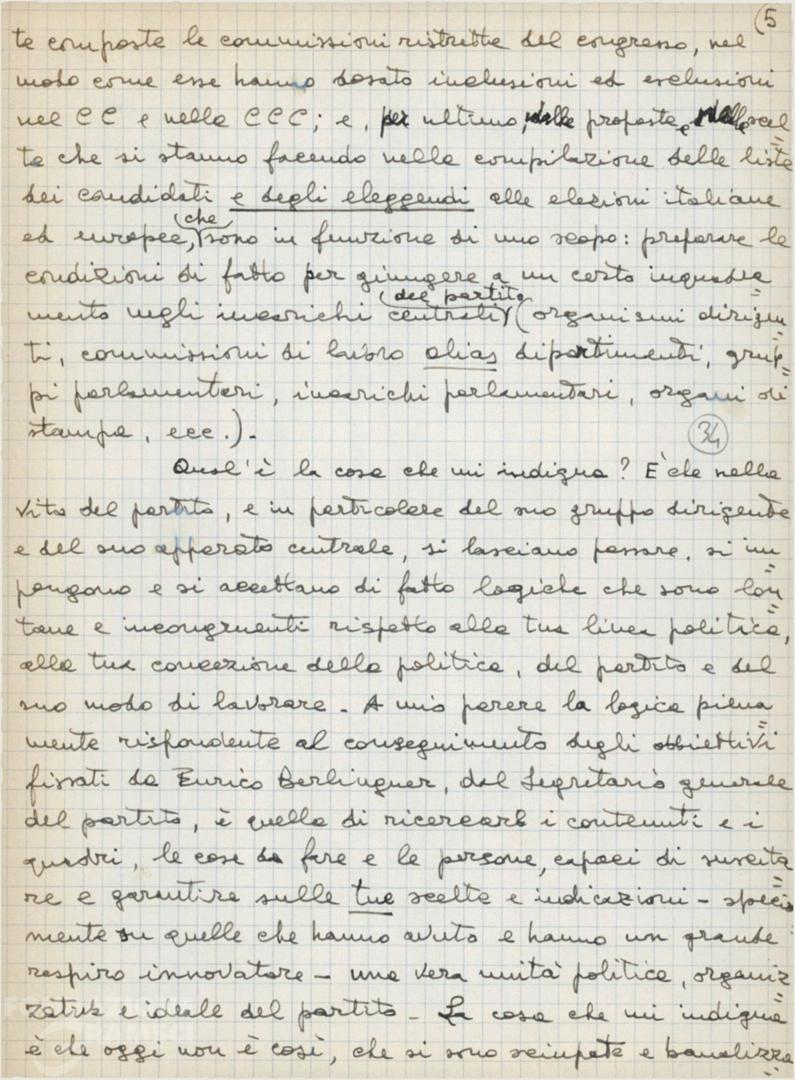 5
te composte le commissioni ristrette del congresso, nel
modo come esse hanno dosato inclusioni ed esclusioni
nel CC e nella CCC; e, per ultimo, nelle proposte e nelle scel
te che si stanno facendo nella compilazione delle liste
dei candidati e degli eleggendi alle elezioni italiane
che
ed europee, sono in funzione di uno scopo: preparare le
condizioni di fatto per giungere a un certo inquadra=
del partito
mento negli incarichi centrali (organismi dirigen=
ti, commissioni di lavoro alias dipartimenti, grup=
pi parlamentari, incarichi parlamentari, organi di
stampa, ecc.).
34
Qual'è la cosa che mi indigna? È che nella
vita del partito, e in particolare del suo gruppo dirigente
e del suo apparato centrale, si lasciano passare, si im=
pongono e si accettano di fatto logiche che sono lon=
tane e incongruenti rispetto alla tua linea politica,
alla tua concezione della politica, del partito e del
suo modo di lavorare. A mio parere la logica piena=
mente rispondente al conseguimento degli obbiettivi
fissati da Enrico Berlinguer, dal Segretario generale
del partito, è quella di ricercare i contenuti e i
quadri, le cose da fare e le persone, capaci di suscita=
re e garantire sulle tue scelte e indicazioni - specia
mente su quelle che hanno avuto e hanno un grande
respiro innovatore - una vera unità politica, organiz=
zativa e ideale del partito. La cosa che mi indigna
è che oggi non è così, che si sono sciupate e banalizza=